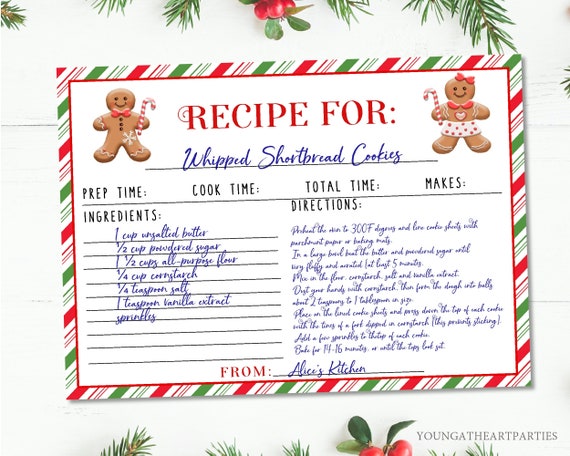 RECIPE FOR:
Whipped Shortbread Cookies
PREP TIME: COOK TIME: TOTAL TIME: MAKES:
INGREDIENTS:
1 cup unsalted butter
1/2 cup powdered sugar
1 1/2 cups all-purpose flour
1/4 cup cornstarch
1/4 teaspoon salt
1 teaspoon vanilla extract
sprinkles
DIRECTIONS:
Preheat the oven to 300F degrees and line cookie sheets with
parchment paper or baking mats.
In a large bowl beat the butter and powdered sugar until
very fluffy and aerated (at least 5 minutes.
Mix in the flour, cornstarch, salt and vanilla extract.
Dust your hands with cornstarch, then form the dough into balls
about 2 teaspoons to 1 tablespoon in size.
Place on the lined cookie sheets and press down the top of each cookie
with the tines of a fork dipped in cornstarch (this prevents sticking).
Add a few sprinkles to the top of each cookie.
Bake for 14-16 minutes, or until the tops look set.
FROM: Alice's Kitchen
YOUNGATHEARTPARTIES